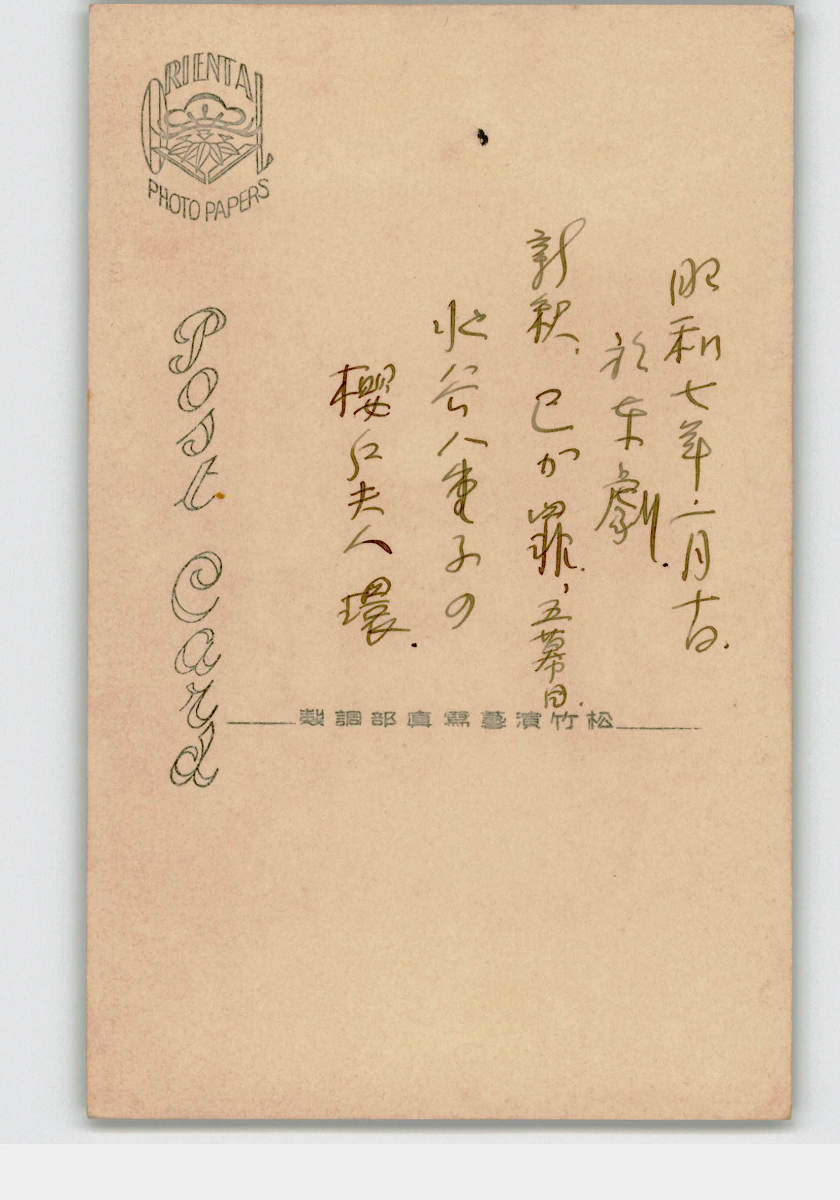 ORIENTAL
PHOTO PAPERS
Post Card
昭和七年二月十日.
於東劇.
新釈.己が罪,五幕目.
水谷八重子の
櫻戸夫人環.
松竹演藝寫真部調製